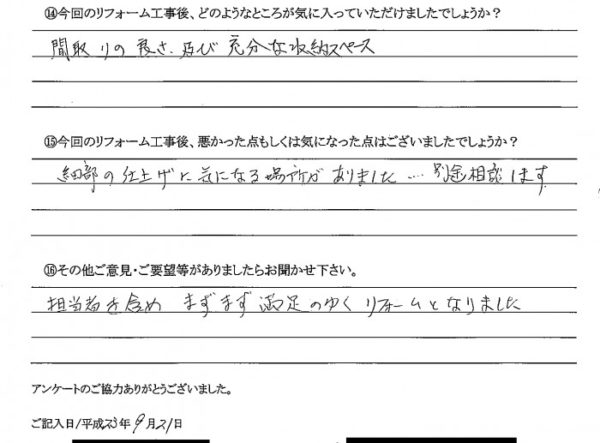 ⑭今回のリフォーム工事後、どのようなところが気に入っていただけましたでしょうか？
間取りの良さ、及び充分な収納スペース
⑮今回のリフォーム工事後、悪かった点もしくは気になった点はございましたでしょうか？
細部の仕上げに気になる場所がありました…別途相談します
⑯その他ご意見・ご要望等がありましたらお聞かせ下さい。
担当者を含め まずまず満足のゆくリフォームとなりました
アンケートのご協力ありがとうございました。
ご記入日/平成23年9月21日